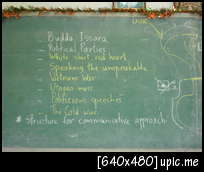 Budda Issara
Political Parties
White shirt red heart
Speaking the unspeakable
Vietnam War
Utopia mess
speeches
The Cold war
* Structure for communicative approach
[640x480] upic.me